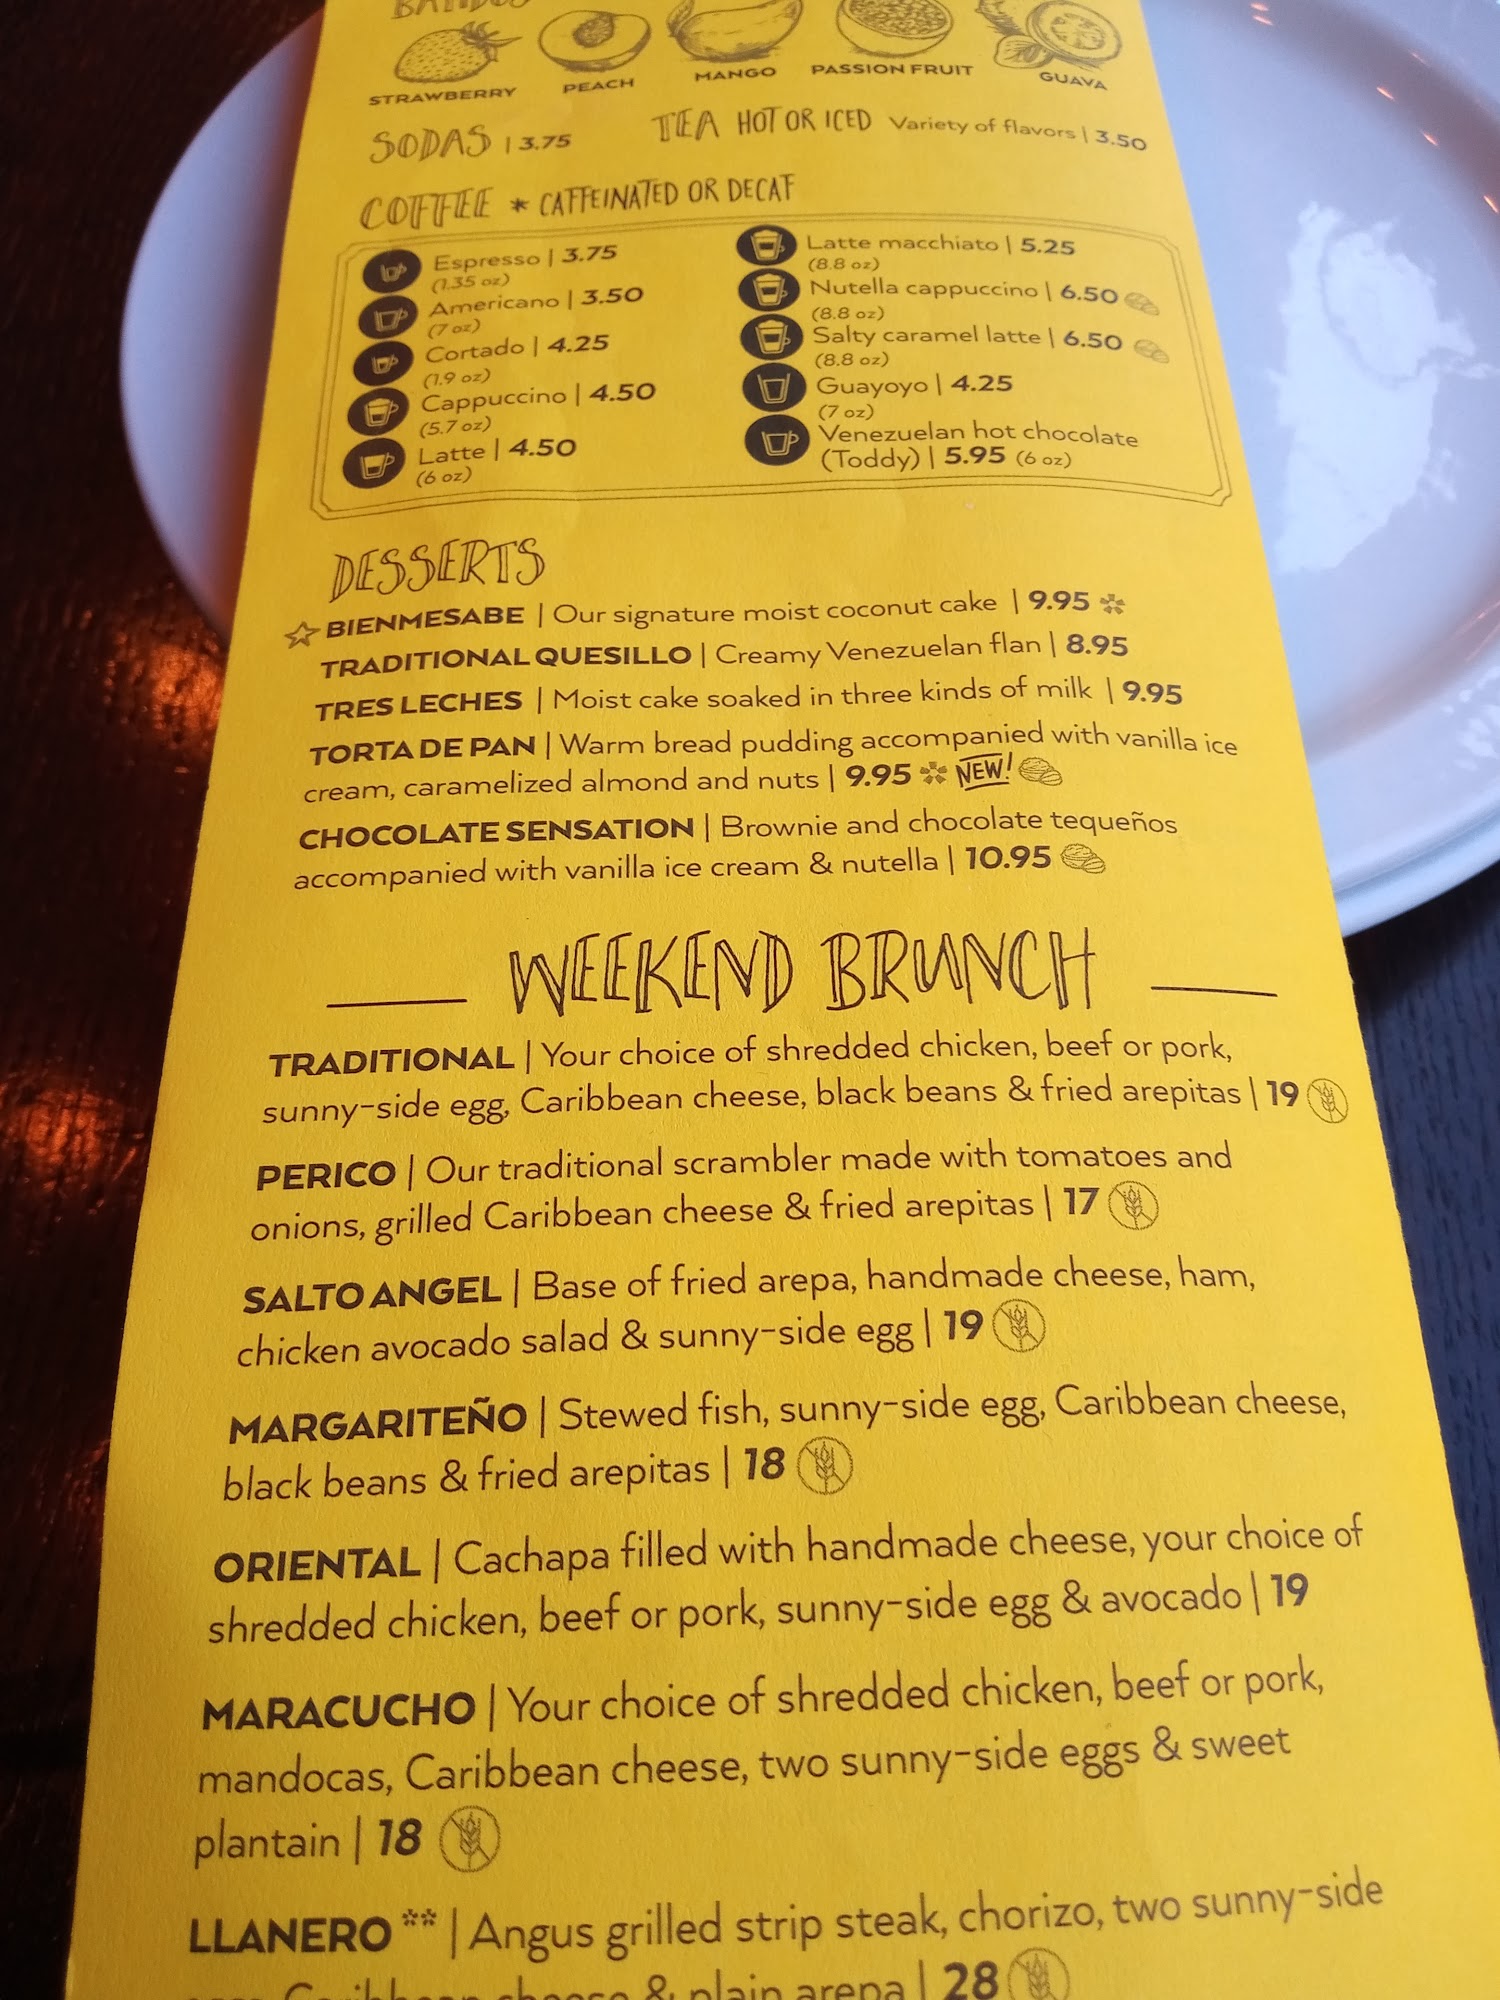 BATIDOS
STRAWBERRY PEACH MANGO PASSION FRUIT GUAVA
SODAS | 3.75
TEA HOT OR ICED Variety of flavors | 3.50
COFFEE * CAFFEINATED OR DECAF
Espresso | 3.75
(1.35 oz)
Americano | 3.50
(7 oz)
Cortado | 4.25
(1.9 oz)
Cappuccino | 4.50
(5.7 oz)
Latte | 4.50
(6 oz)
Latte macchiato | 5.25
(8.8 oz)
Nutella cappuccino | 6.50
(8.8 oz)
Salty caramel latte | 6.50
(8.8 oz)
Guayoyo | 4.25
(7 oz)
Venezuelan hot chocolate
(Toddy) | 5.95 (6 oz)
DESSERTS
BIENMESABE | Our signature moist coconut cake | 9.95
TRADITIONAL QUESILLO | Creamy Venezuelan flan | 8.95
TRES LECHES | Moist cake soaked in three kinds of milk | 9.95
TORTA DE PAN | Warm bread pudding accompanied with vanilla ice
cream, caramelized almond and nuts | 9.95 NEW!
CHOCOLATE SENSATION | Brownie and chocolate tequeños
accompanied with vanilla ice cream & nutella | 10.95
WEEKEND BRUNCH
TRADITIONAL | Your choice of shredded chicken, beef or pork,
sunny-side egg, Caribbean cheese, black beans & fried arepitas | 19
PERICO | Our traditional scrambler made with tomatoes and
onions, grilled Caribbean cheese & fried arepitas | 17
SALTO ANGEL | Base of fried arepa, handmade cheese, ham,
chicken avocado salad & sunny-side egg | 19
MARGARITEÑO | Stewed fish, sunny-side egg, Caribbean cheese,
black beans & fried arepitas | 18
ORIENTAL | Cachapa filled with handmade cheese, your choice of
shredded chicken, beef or pork, sunny-side egg & avocado | 19
MARACUCHO | Your choice of shredded chicken, beef or pork,
mandocas, Caribbean cheese, two sunny-side eggs & sweet
plantain | 18
LLANERO ** | Angus grilled strip steak, chorizo, two sunny-side
Caribbean cheese & plain arepa | 28